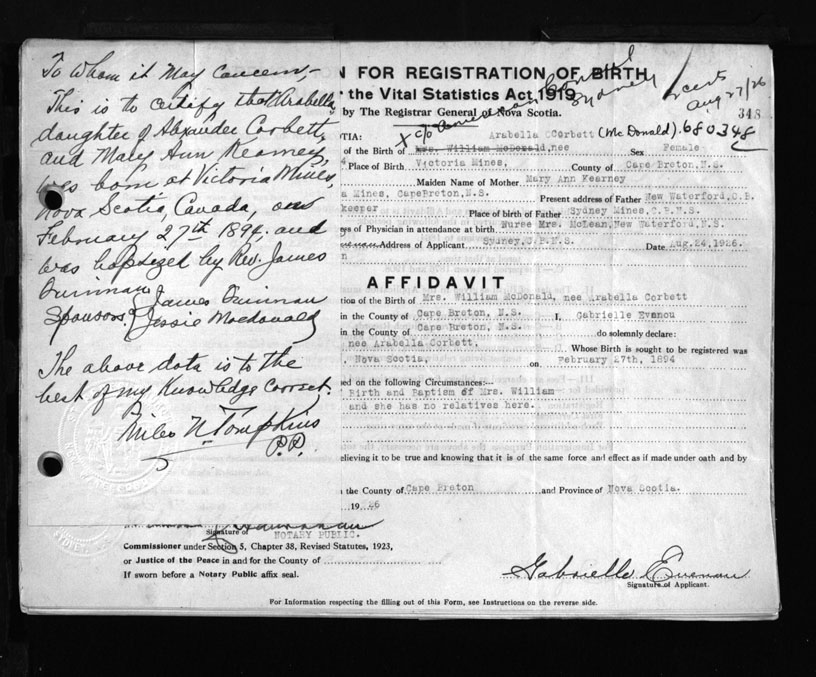 To Whom it May Concern,-
This is to certify that Arabella,
daughter of Alexander Corbett,
and Mary Ann Kearney,
was born at Victoria Mines,
Nova Scotia, Canada, on
February 27th 1894, and
was baptized by Rev. James
Quinnan
Sponsors. { James Quinnan
Jessie Macdonald
The above data is to the
best of my Knowledge Correct.
Miles N. Tompkins
P.P.
N FOR REGISTRATION OF BIRTH
r the Vital Statistics Act 1919
by The Registrar General of Nova Scotia.
Sydney
2 certs
Aug 27/26
348
TIA: X c/o Arabella CCorbett (McDonald). 680348
of the Birth of Mrs. William McDonald, nee Sex Female
4 Place of Birth Victoria Mines, County of Cape Breton, N.S.
Maiden Name of Mother Mary Ann Kearney
a Mines, CapeBreton, N.S. Present address of Father New Waterford, C.B.
keeper Place of birth of Father Sydney Mines, C.B.N.S.
ess of Physician in attendance at birth Nurse Mrs. McLean, New Waterford, N.S.
Address of Applicant Sydney, C.B.N.S. Date Aug. 24, 1926.
n
AFFIDAVIT
tion of the Birth of Mrs. William McDonald, nee Arabella Corbett
in the County of Cape Breton, N.S. I, Gabrielle Evanou
in the County of Cape Breton, N.S. do solemnly declare:
nee Arabella Corbett, Whose Birth is sought to be registered was
Nova Scotia, on February 27th, 1894
sed on the following Circumstances:—
Birth and Baptism of Mrs. William
and she has no relatives here.
elieving it to be true and knowing that it is of the same force and effect as if made under oath and by
the County of Cape Breton and Province of Nova Scotia.
1926
Signature of NOTARY PUBLIC.
Commissioner under Section 5, Chapter 38, Revised Statutes, 1923,
or Justice of the Peace in and for the County of
If sworn before a Notary Public affix seal.
Gabrielle Evenou
Signature of Applicant.
For Information respecting the filling out of this Form, see Instructions on the reverse side.